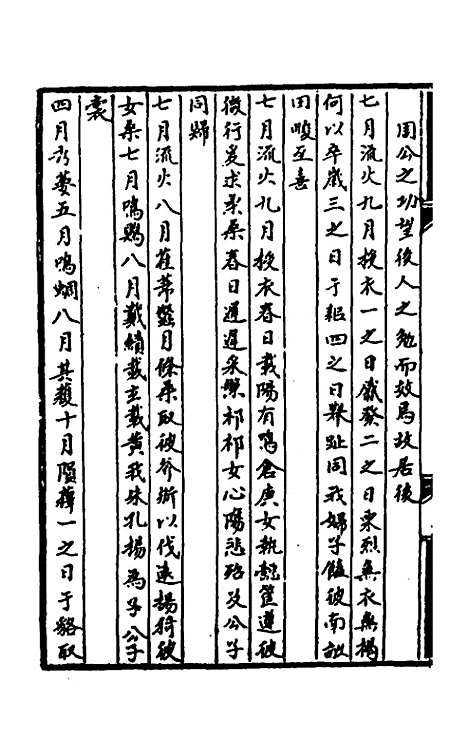 周公之功望後人之勉而效焉故居後
七月流火九月授衣一之日觱發二之日栗烈無衣無褐
何以卒歲三之日于耜四之日舉趾同我婦子饁彼南畝
田畯至喜
七月流火九月授衣春日載陽有鳴倉庚女執懿筐遵彼
微行爰求柔桑春日遲遲采蘩祁祁女心傷悲殆及公子
同歸
七月流火八月萑葦蠶月條桑取彼斧斨以伐遠揚猗彼
女桑七月鳴鵙八月載績載玄載黃我朱孔揚為子公子
裳
四月秀葽五月鳴蜩八月其穫十月隕蘀一之日于貉取